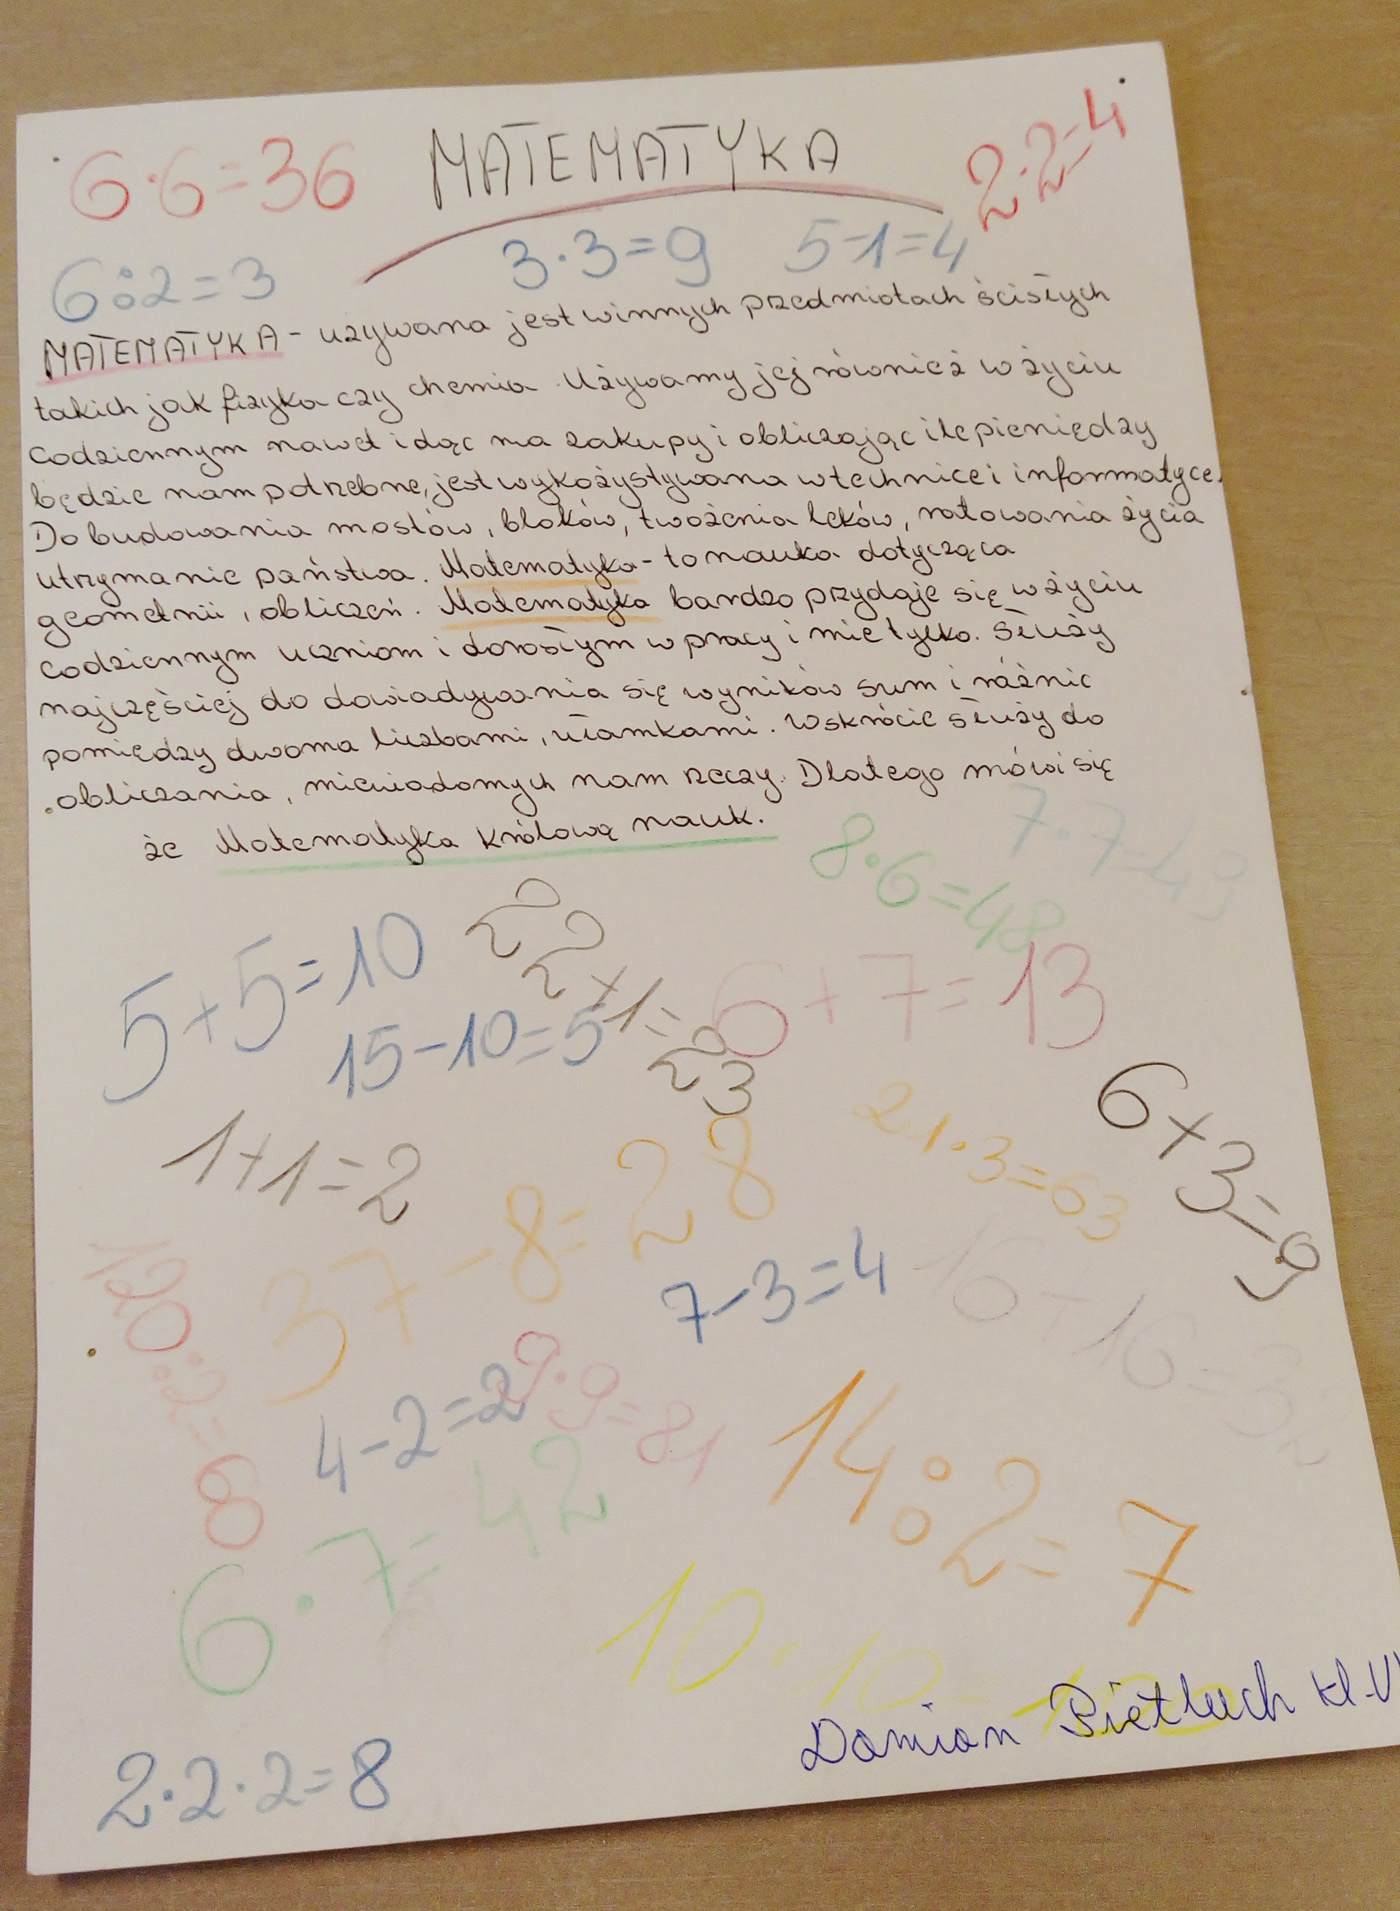 6·6=36 MATEMATYKA 2·2=4
6:2=3 3·3=9 5-1=4
MATEMATYKA - używana jest winnych przedmiotach ścisłych
takich jak fizyka czy chemia. Używamy jej również w życiu
codziennym nawet idąc na zakupy i obliczając ile pieniędzy
będzie nam potrzebne, jest wykożystywana w technice i informatyce.
Do budowania mostów, bloków, twożenia leków, ratowania życia
utrzymanie państwa. Matematyka - to nauka dotycząca
geometrii, obliczeń. Matematyka bardzo przydaje się w życiu
codziennym uczniom i dorosłym w pracy i nie tylko. Służy
najczęściej do dowiadywania się wyników sum i różnic
pomiędzy dwoma liczbami, ułamkami. Wskrócie służy do
obliczania, niewiadomych nam rzeczy. Dlatego mówi się
że Matematyka królową nauk.
7·7=49
8·6=48
5+5=10
22+1=23
6+7=13
15-10=5
6+3=9
21·3=63
1+1=2
37-8=28
7-3=4
16+16=32
120:2=60
4-2=2
9·9=81
14:2=7
6·7=42
10·10=100
Damian Pietluch kl. V
2·2·2=8